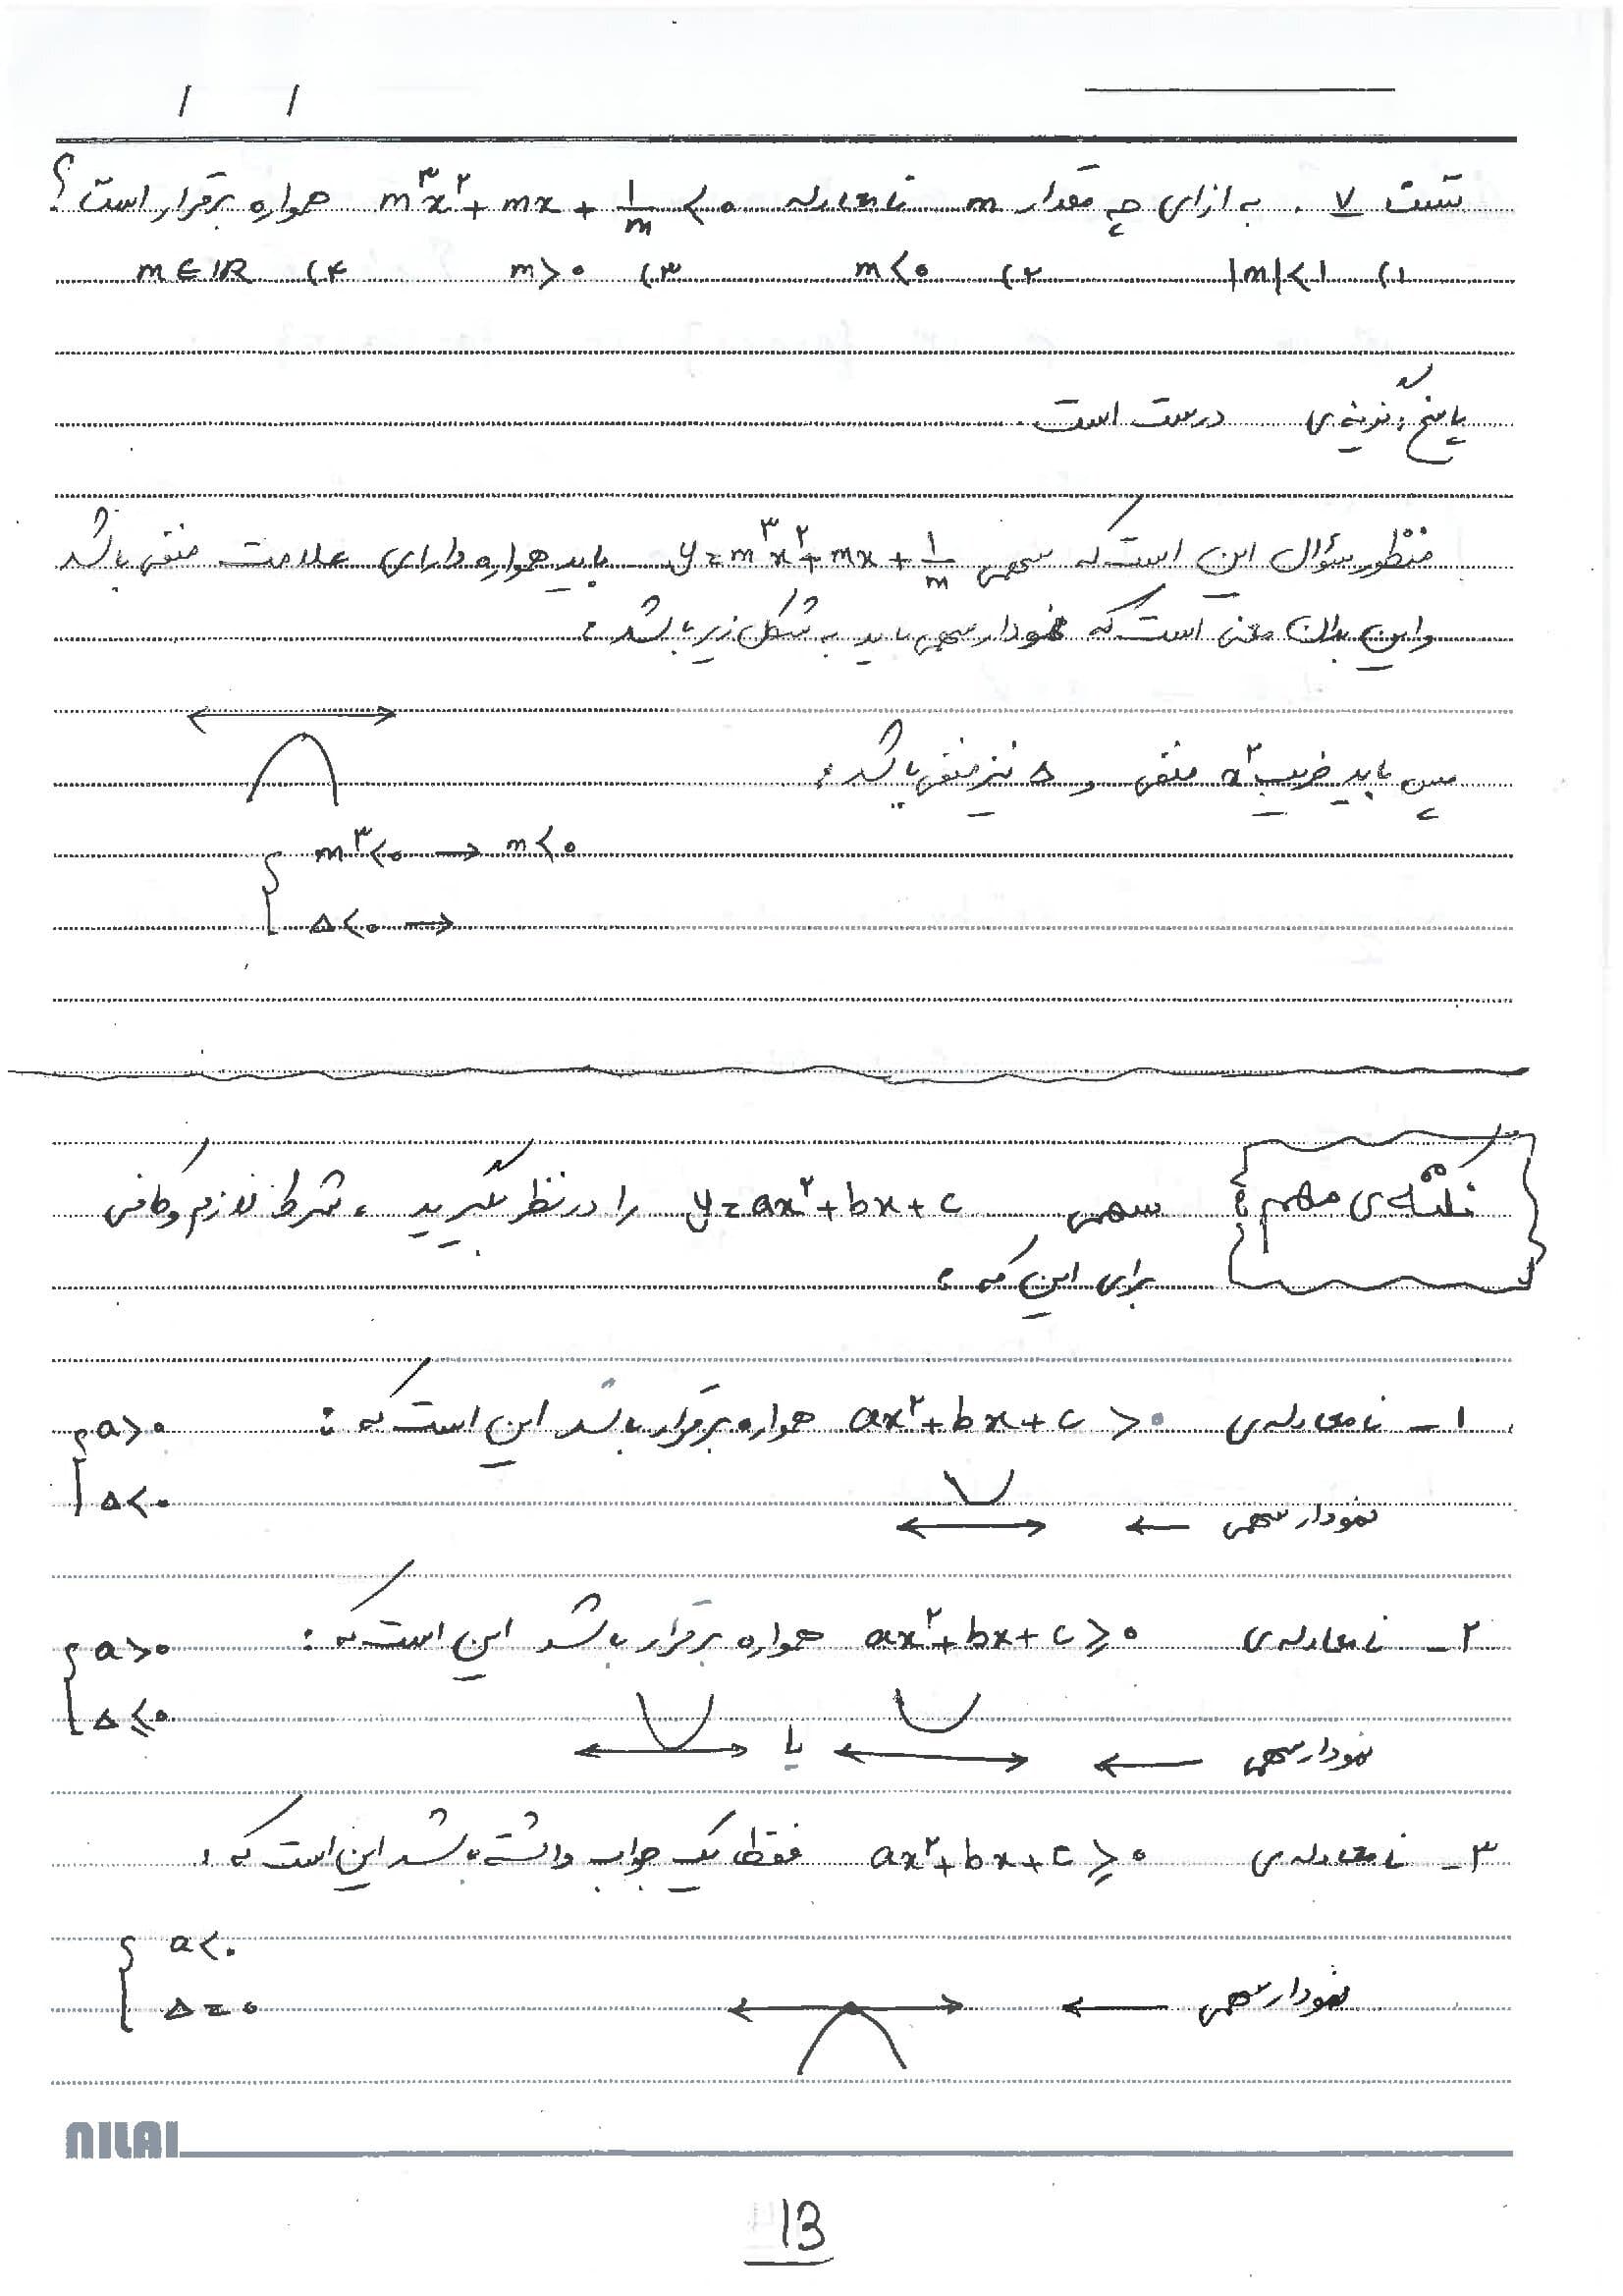 / /
تست ۷. به ازای چه مقدار m نامعادله m³x² + mx + 1/m < 0 همواره برقرار است؟
۱) |m|<۱ ۲) m<0 ۳) m>0 ۴) m∈IR
پاسخ: گزینه‌ی درست است.
منظور سؤال این است که سهمی y=m³x²+mx+1/m باید همواره دارای علامت منفی باشد
و این بدان معنی است که نمودار سهمی باید به شکل زیر باشد:
پس باید ضریب x² منفی و Δ نیز منفی باشد:
m³<0 → m<0
Δ<0 →
نکته‌ی مهم: سهمی y=ax²+bx+c را در نظر بگیرید، شرط لازم و کافی
برای این که:
۱- نامعادله‌ی ax²+bx+c >0 همواره برقرار باشد این است که: a>0
نمودار سهمی ← Δ<0
۲- نامعادله‌ی ax²+bx+c ≥0 همواره برقرار باشد این است که: a>0
نمودار سهمی ← یا Δ≤0
۳- نامعادله‌ی ax²+bx+c ≥0 فقط یک جواب داشته باشد این است که:
a<0
نمودار سهمی ← Δ=0
NILAI
13